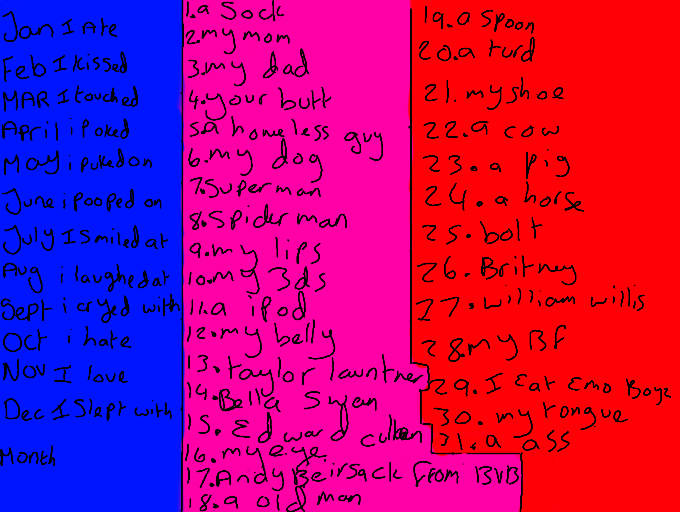 Jan I Ate
Feb I kissed
MAR I touched
April i Poked
May i puked on
June i pooped on
July I Smiled at
Aug i laughed at
Sept i cryed with
Oct i hate
Nov I love
Dec I Slept with
Month
1.a Sock
2.my mom
3.my dad
4.your butt
5a homeless guy
6.my dog
7.Superman
8.Spider man
9.my lips
10.my 3ds
11.a ipod
12.my belly
13.taylor launtner
14.Bella Swan
15.Edward cullen
16.my eye
17.Andy Beirsack from BVB
18.a old man
19.a spoon
20.a turd
21.my shoe
22.a cow
23.a pig
24.a horse
25.bolt
26.Britney
27.william willis
28.my BF
29.I Eat Emo Boyz
30.my tongue
31.a ass